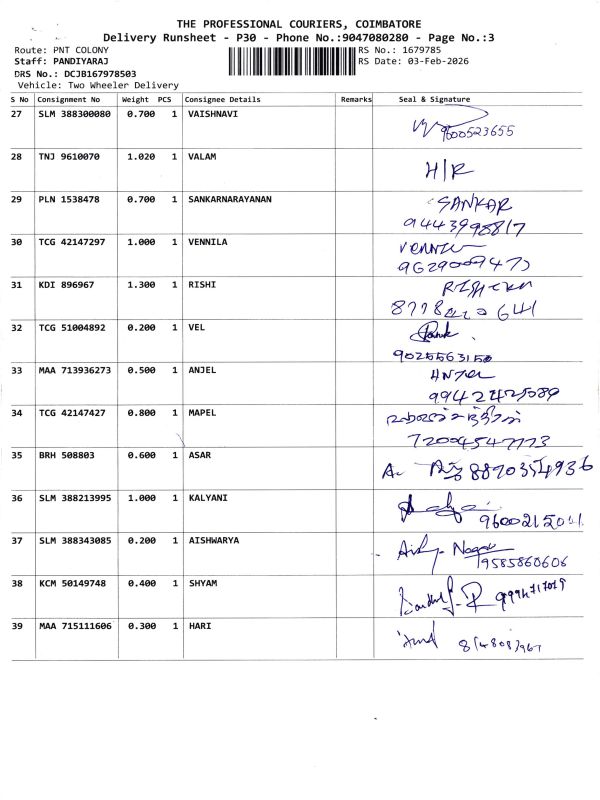 THE PROFESSIONAL COURIERS, COIMBATORE
Delivery Runsheet - P30 - Phone No.:9047080280 - Page No.:3
Route: PNT COLONY RS No.: 1679785
Staff: PANDIYARAJ RS Date: 03-Feb-2026
DRS No.: DCJB167978503
Vehicle: Two Wheeler Delivery
S No Consignment No Weight PCS Consignee Details Remarks Seal & Signature
27 SLM 388300080 0.700 1 VAISHNAVI
9600523655
28 TNJ 9610070 1.020 1 VALAM
H/R
29 PLN 1538478 0.700 1 SANKARNARAYANAN SANKAR
9443998817
30 TCG 42147297 1.000 1 VENNILA
31 KDI 896967 1.300 1 RISHI
32 TCG 51004892 0.200 1 VEL
9025563150
33 MAA 713936273 0.500 1 ANJEL
99422425089
34 TCG 42147427 0.800 1 MAPEL
35 BRH 508803 0.600 1 ASAR
8870354936
36 SLM 388213995 1.000 1 KALYANI
37 SLM 388343085 0.200 1 AISHWARYA
9585860606
38 KCM 50149748 0.400 1 SHYAM
39 MAA 715111606 0.300 1 HARI